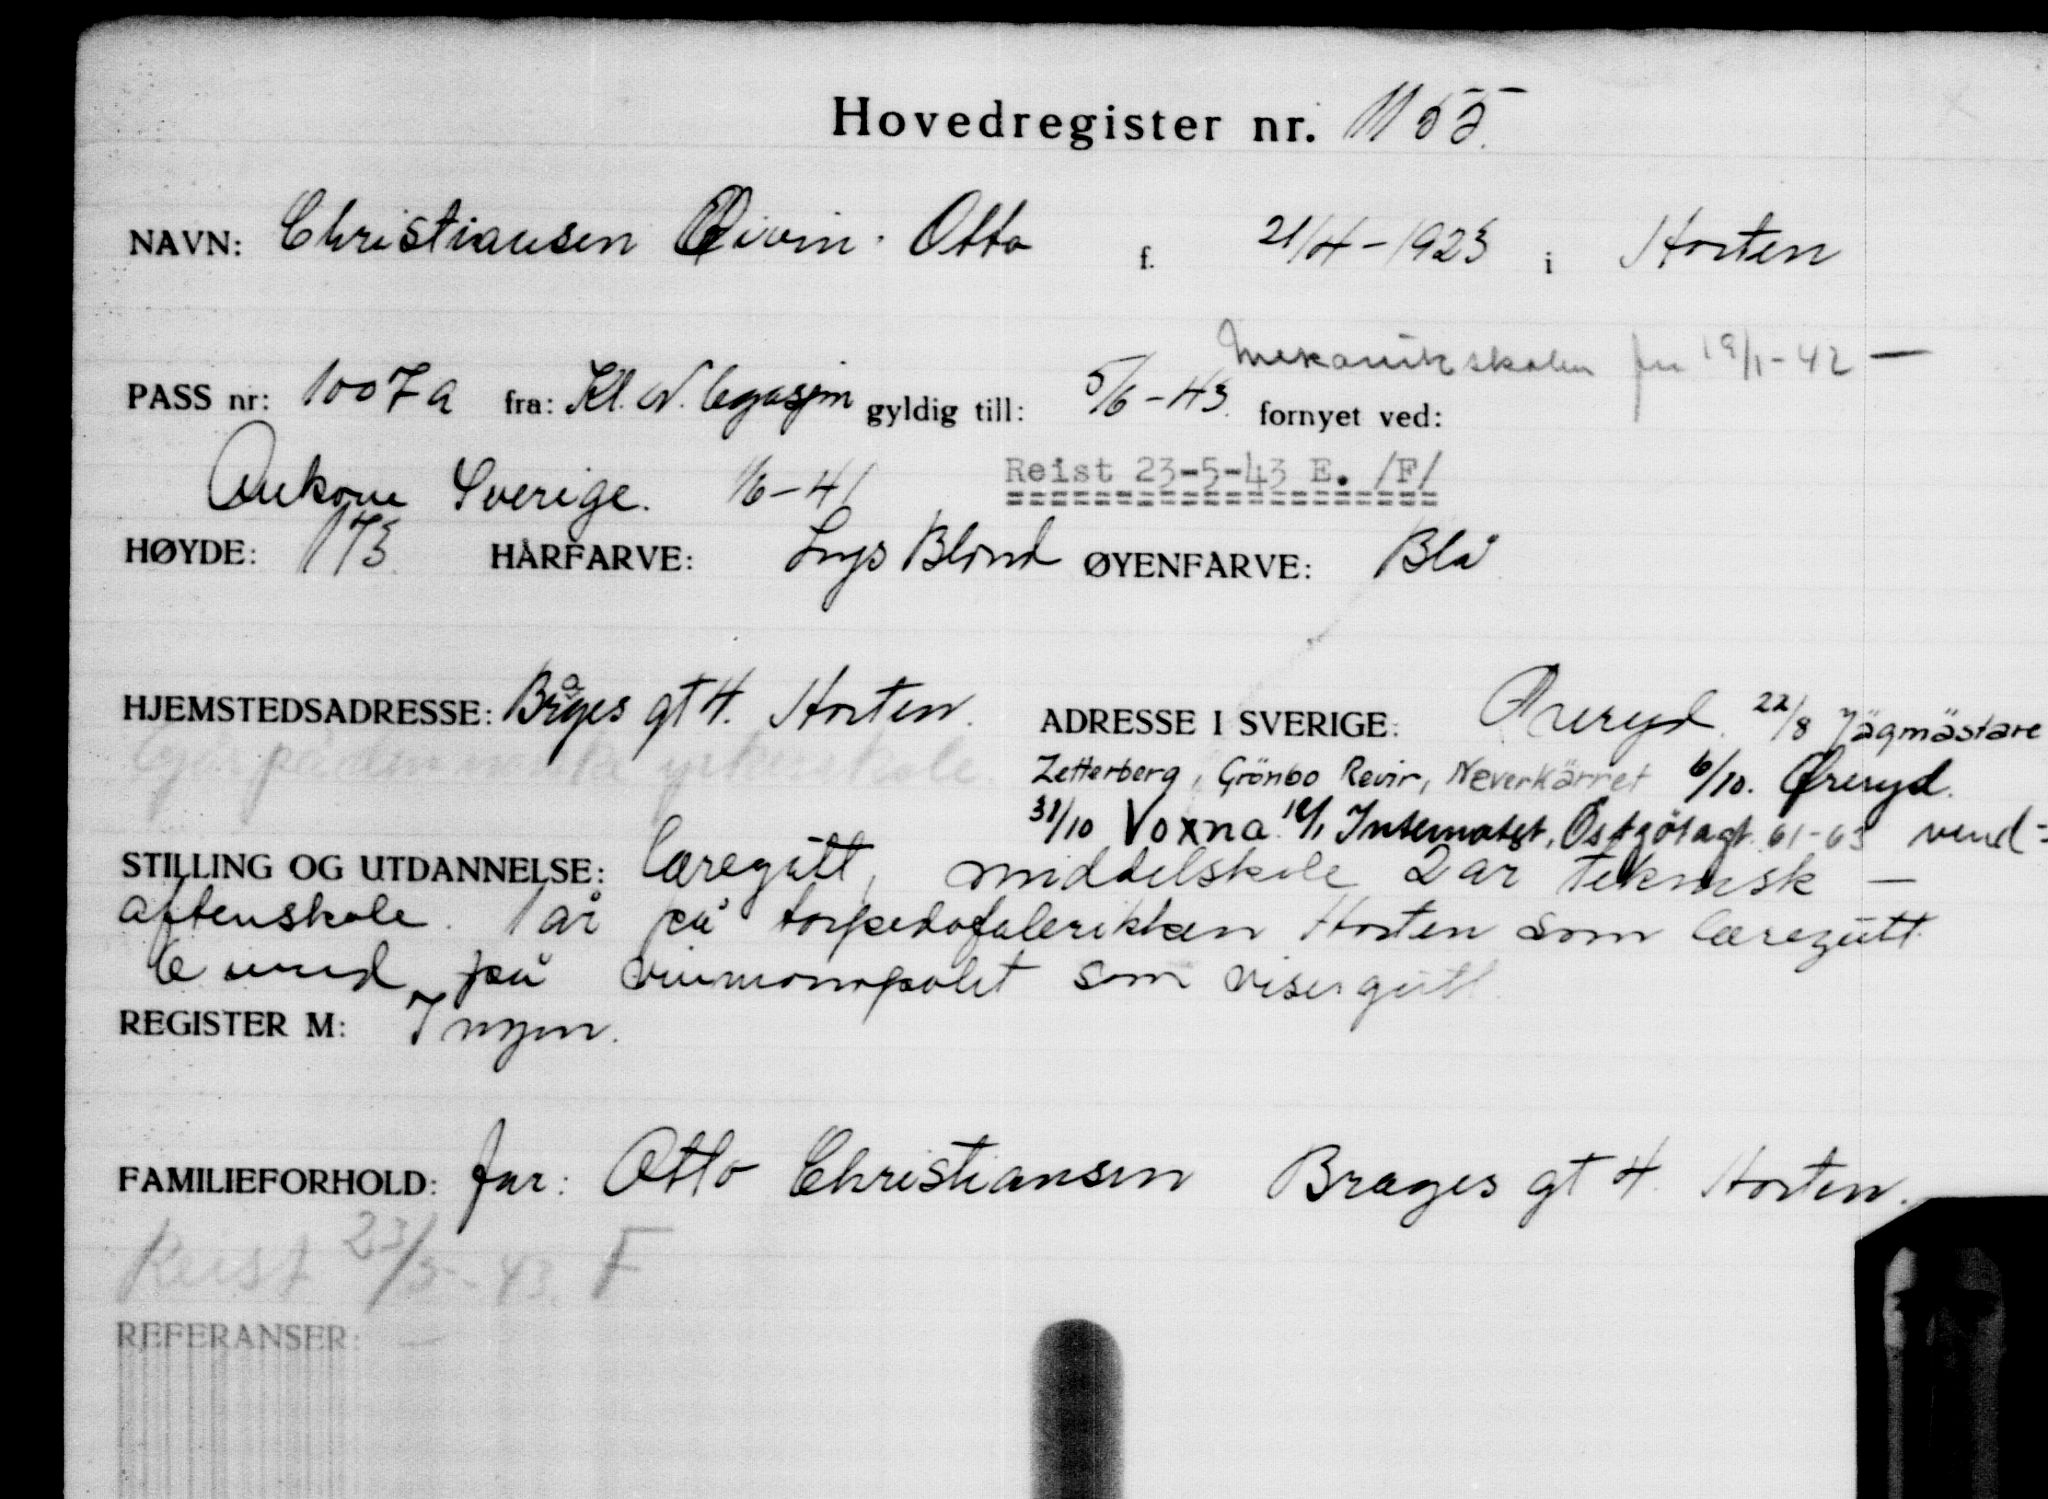 Hovedregister nr. 1155.
NAVN: Christiansen Øivin Otto f. 21/4-1923 i Horten
Mekanikskolen fra 19/1-42 —
PASS nr: 1007a fra: Kl. N. legasjon gyldig till: 5/6-43. fornyet ved:
Ankom Sverige. 1/6-41 Reist 23-5-43 E. /F/
HØYDE: 173. HÅRFARVE: Lys Blond ØYENFARVE: Blå
HJEMSTEDSADRESSE: Brages gt 4. Horten. ADRESSE I SVERIGE: Øreryd. 22/8 Jägmästare
Zetterberg, Grönbo Revir, Neverkärret 6/10. Øreryd.
31/10 Voxna. Internatet, Östgötagt. 61-63 vend-
STILLING OG UTDANNELSE: læregutt, middelskole 2 år teknisk —
aftenskole. 1 år på torpedofabrikken Horten som læregutt
6 mnd på vinmonopolet som visergutt.
REGISTER M: Ingen.
FAMILIEFORHOLD: far: Otto Christiansen Brages gt 4. Horten.
Reist 23/5-43. F
REFERANSER: —